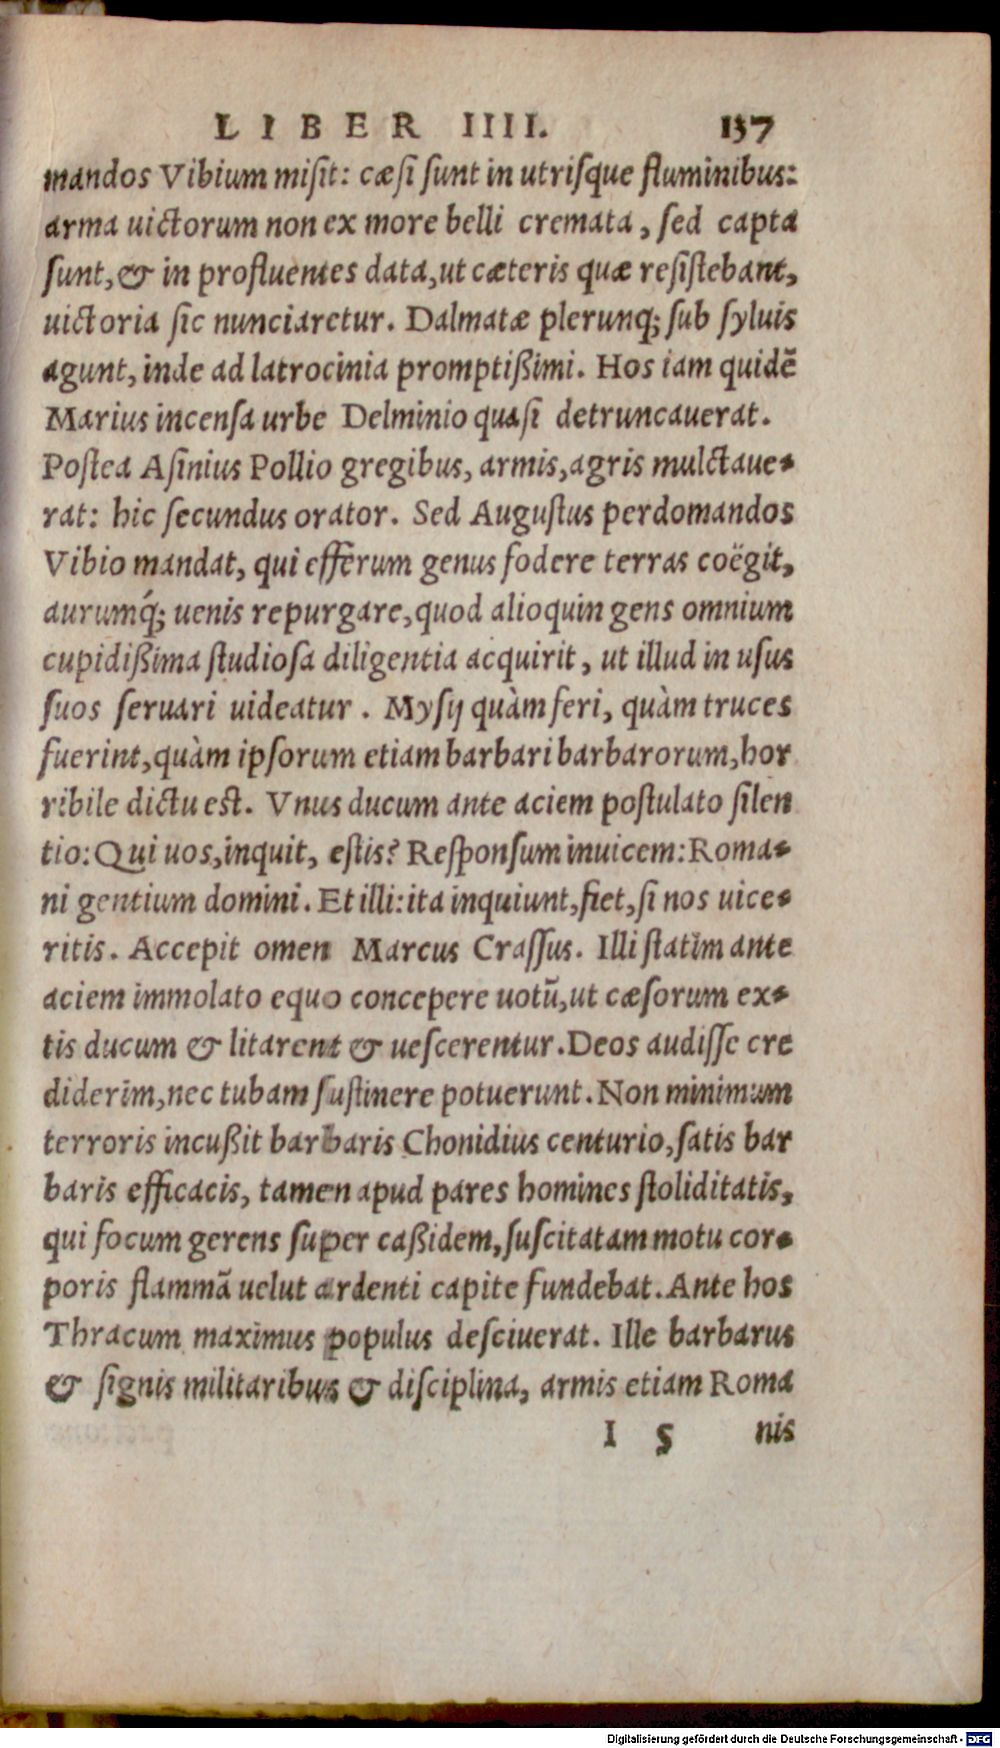 LIBER IIII. 137
mandos Vibium misit: cæsi sunt in utrisque fluminibus:
arma uictorum non ex more belli cremata, sed capta
sunt, & in profluentes data, ut cæteris quæ resistebant,
uictoria sic nunciaretur. Dalmatæ plerunq; sub syluis
agunt, inde ad latrocinia promptißimi. Hos iam quidē
Marius incensa urbe Delminio quasi detruncauerat.
Postea Asinius Pollio gregibus, armis, agris mulctaue-
rat: hic secundus orator. Sed Augustus perdomandos
Vibio mandat, qui efferum genus fodere terras coëgit,
aurumq́; uenis repurgare, quod alioquin gens omnium
cupidißima studiosa diligentia acquirit, ut illud in usus
suos seruari uideatur. Mysij quàm feri, quàm truces
fuerint, quàm ipsorum etiam barbari barbarorum, hor
ribile dictu est. Vnus ducum ante aciem postulato silen
tio: Qui uos, inquit, estis? Responsum inuicem: Roma-
ni gentium domini. Et illi: ita inquiunt, fiet, si nos uice-
ritis. Accepit omen Marcus Crassus. Illi statim ante
aciem immolato equo concepere uotū, ut cæsorum ex-
tis ducum & litarent & uescerentur. Deos audisse cre
diderim, nec tubam sustinere potuerunt. Non minimum
terroris incußit barbaris Chonidius centurio, satis bar
baris efficacis, tamen apud pares homines stoliditatis,
qui focum gerens super caßidem, suscitatam motu cor-
poris flammā uelut ardenti capite fundebat. Ante hos
Thracum maximus populus desciuerat. Ille barbarus
& signis militaribus & disciplina, armis etiam Roma
I 5 nis
Digitalisierung gefördert durch die Deutsche Forschungsgemeinschaft - DFG